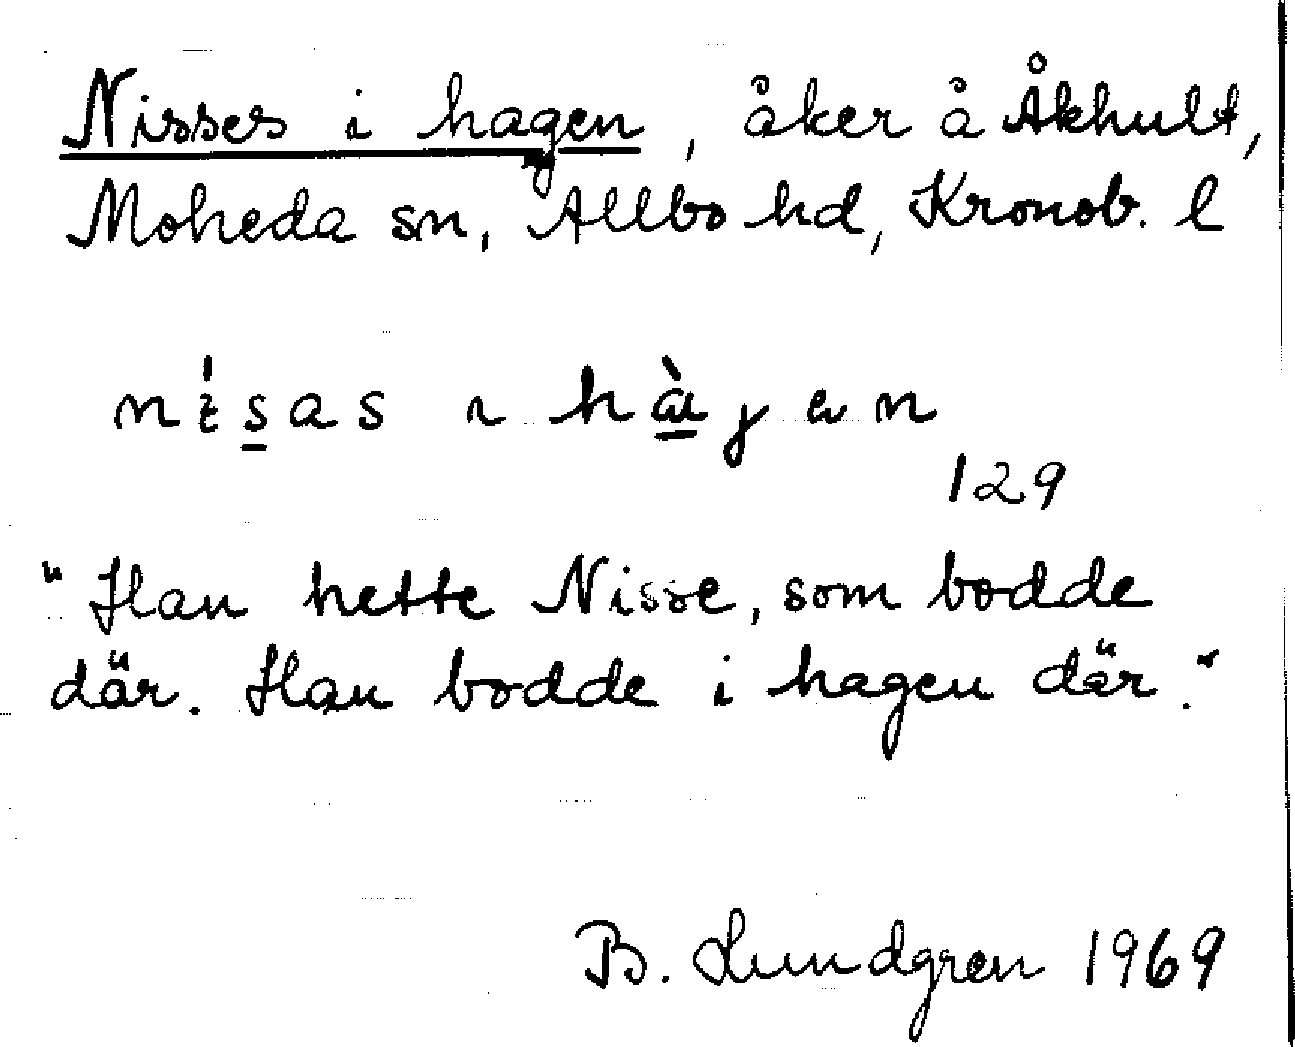 Nisses i hagen, åker å Åkhult,
Moheda sn, Allbo hd, Kronob. l
129
"Han hette Nisse, som bodde
där. Han bodde i hagen där."
B. Lundgren 1969